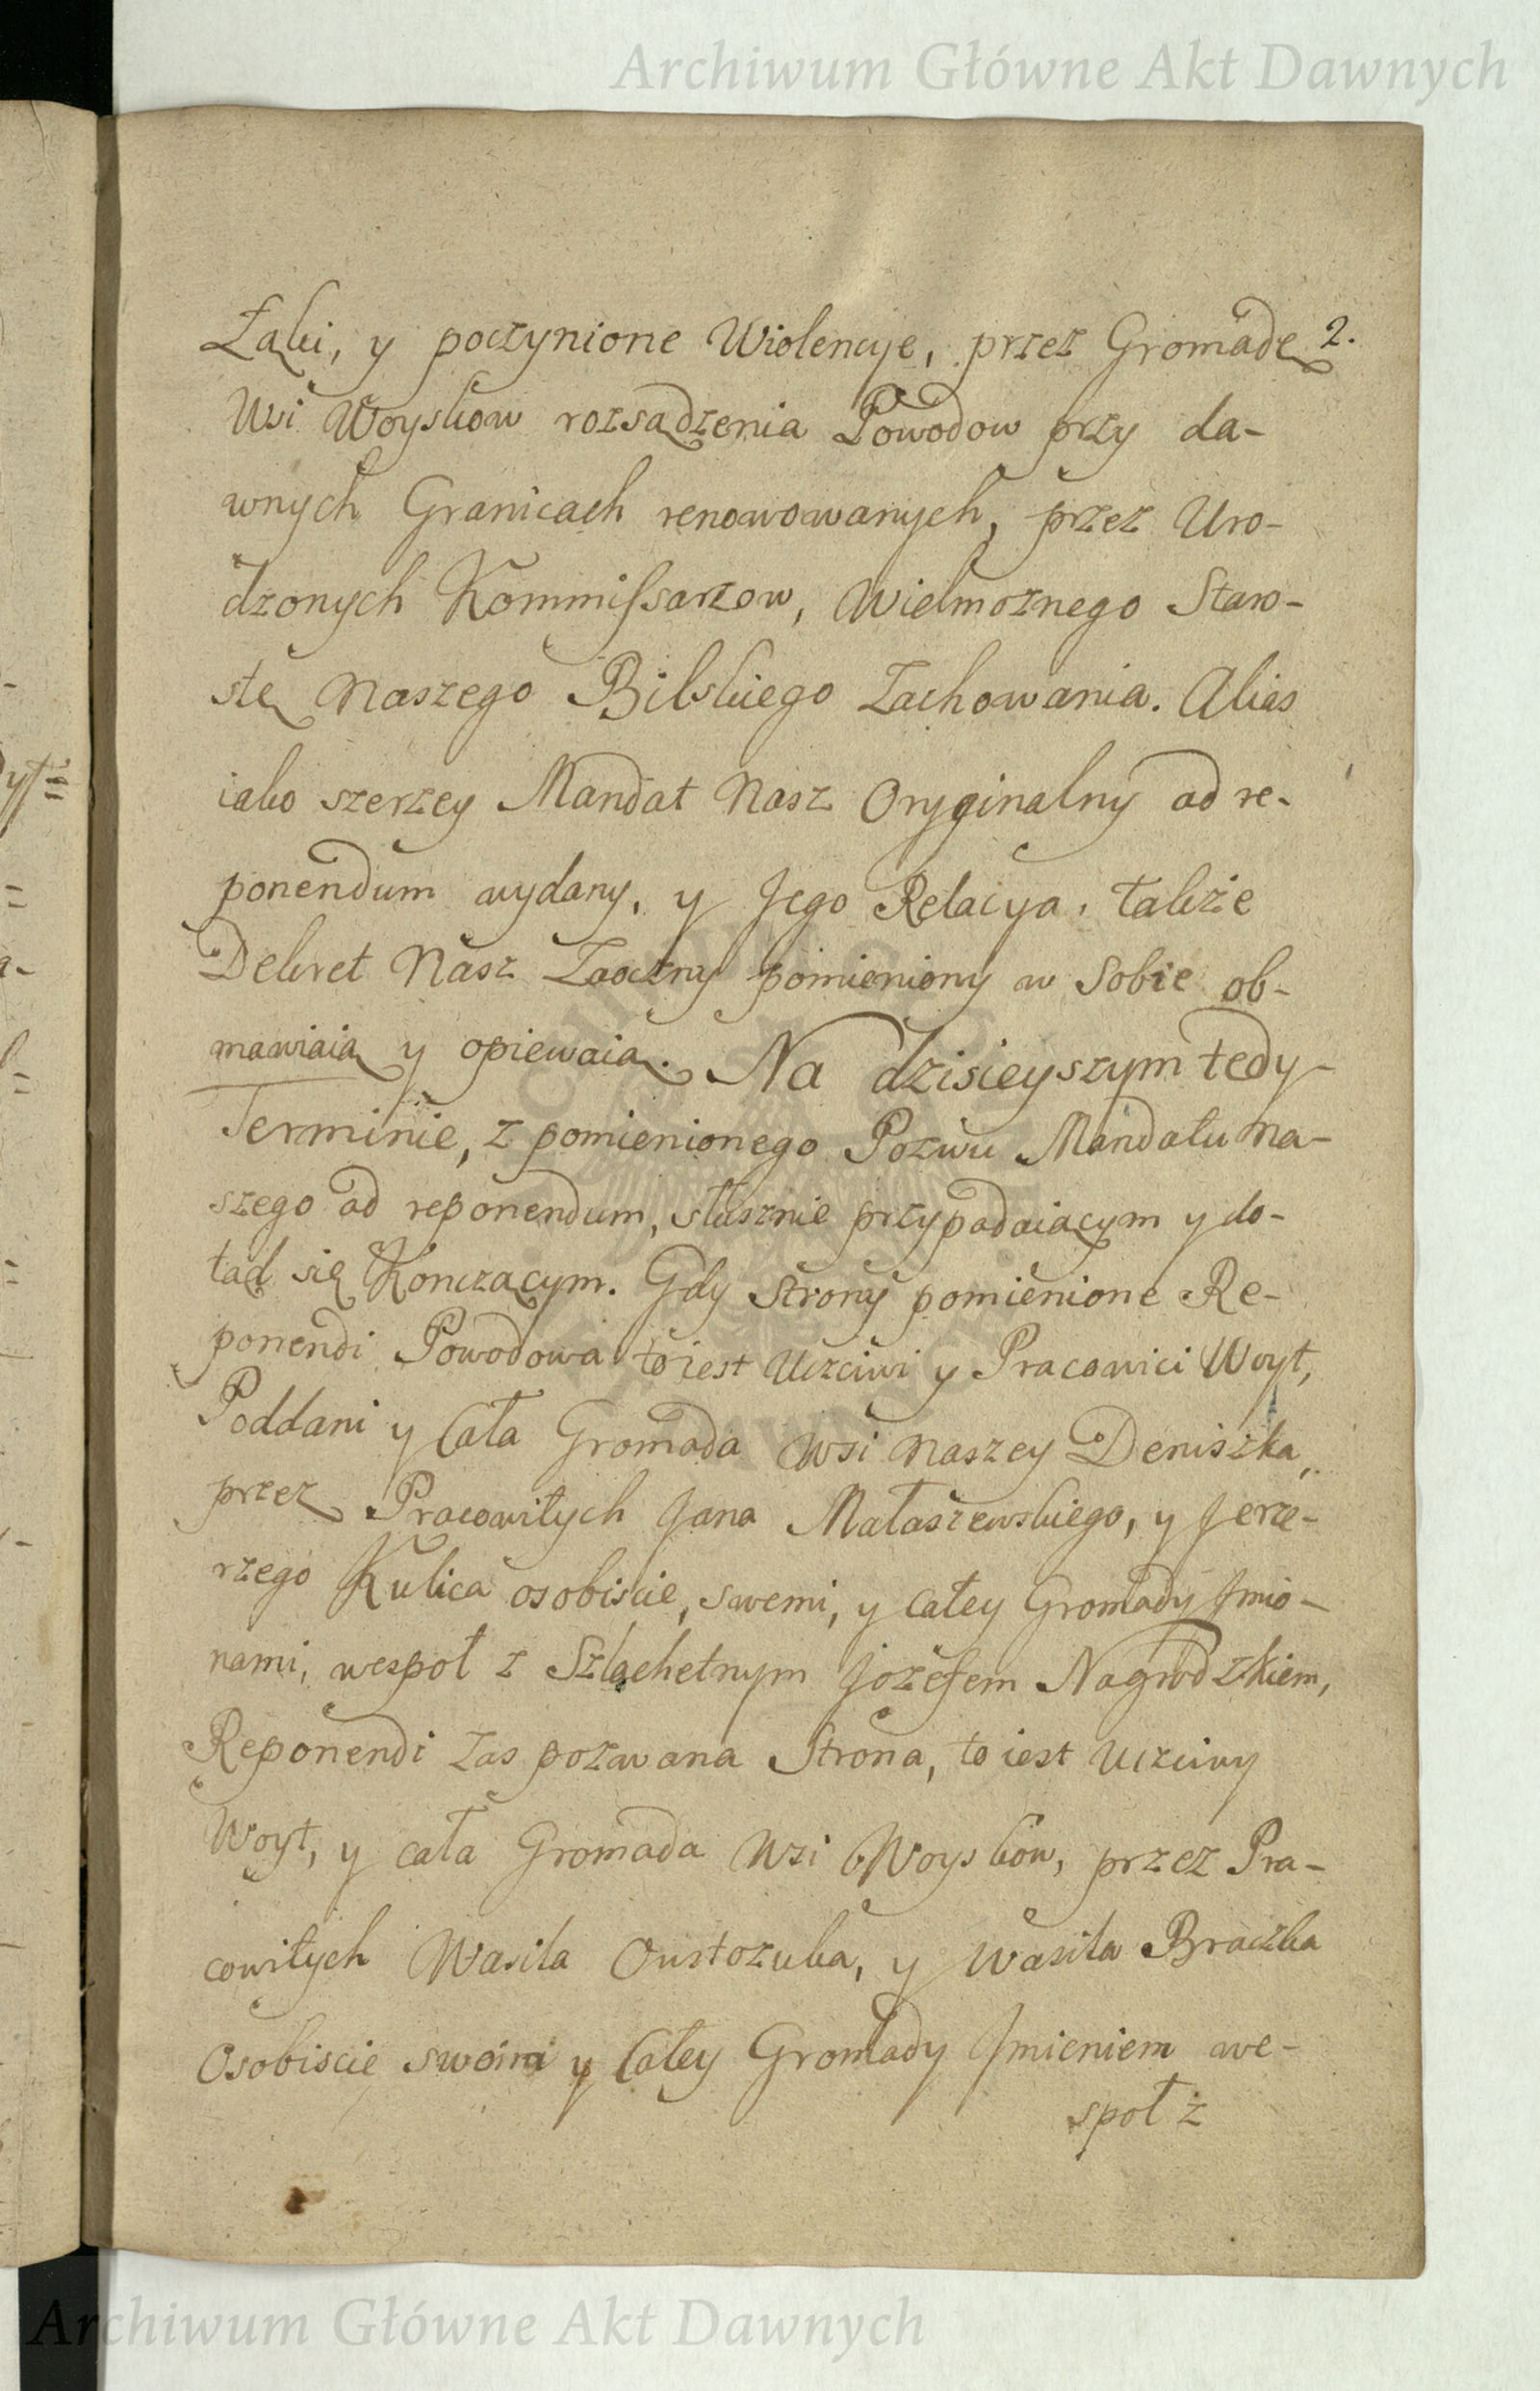 Archiwum Główne Akt Dawnych
Łąki, y poczynione Wiolencye, przez Gromadę 2.
Wsi Woyskow rozsądzenia Powodow przy da-
wnych Granicach renowowanych, przez Uro-
dzonych Kommissarzow, Wielmoznego Staro-
stę Naszego Bilskiego Zachowania. Alias
iako szerzey Mandat Nasz Oryginalny ad re-
ponendum wydany, y Jego Relacya, także
Dekret Nasz Zaoczny pomieniony w Sobie ob-
mawiaią y opiewaią. Na dzisieyszym tedy
Terminie, z pomienionego Pozwu Mandatu Na-
szego ad reponendum, słusznie przypadaiącym y do-
tąd się Kończącym. Gdy Strony pomienione Re-
ponendi Powodowa to iest Uczciwi y Pracowici Woyt,
Poddani y Cała Gromada Wsi Naszey Deniszka,
przez Pracowitych Jana Małaszewskiego, y Jerze-
rzego Kulica osobiscie, swemi, y całey Gromady Jmio-
nami, wespoł z Szlachetnym Jozefem Nagrodzkiem,
Reponendi Zas pozwana Strona, to iest Uczciwy
Woyt, y cała Gromada Wsi Woyskow, przez Pra-
cowitych Wasila Oustozuba, y Wasila Braczka
Osobiscie swoim y Całey Gromady Jmieniem we-
społ z
Archiwum Główne Akt Dawnych